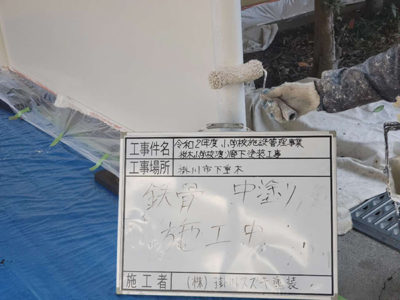 工事件名 令和2年度 小学校施設管理事業
桜木小学校渡り廊下塗装工事
工事場所 掛川市下垂木
鉄骨 中塗り
施工中
施工者 (株)掛川スズキ塗装